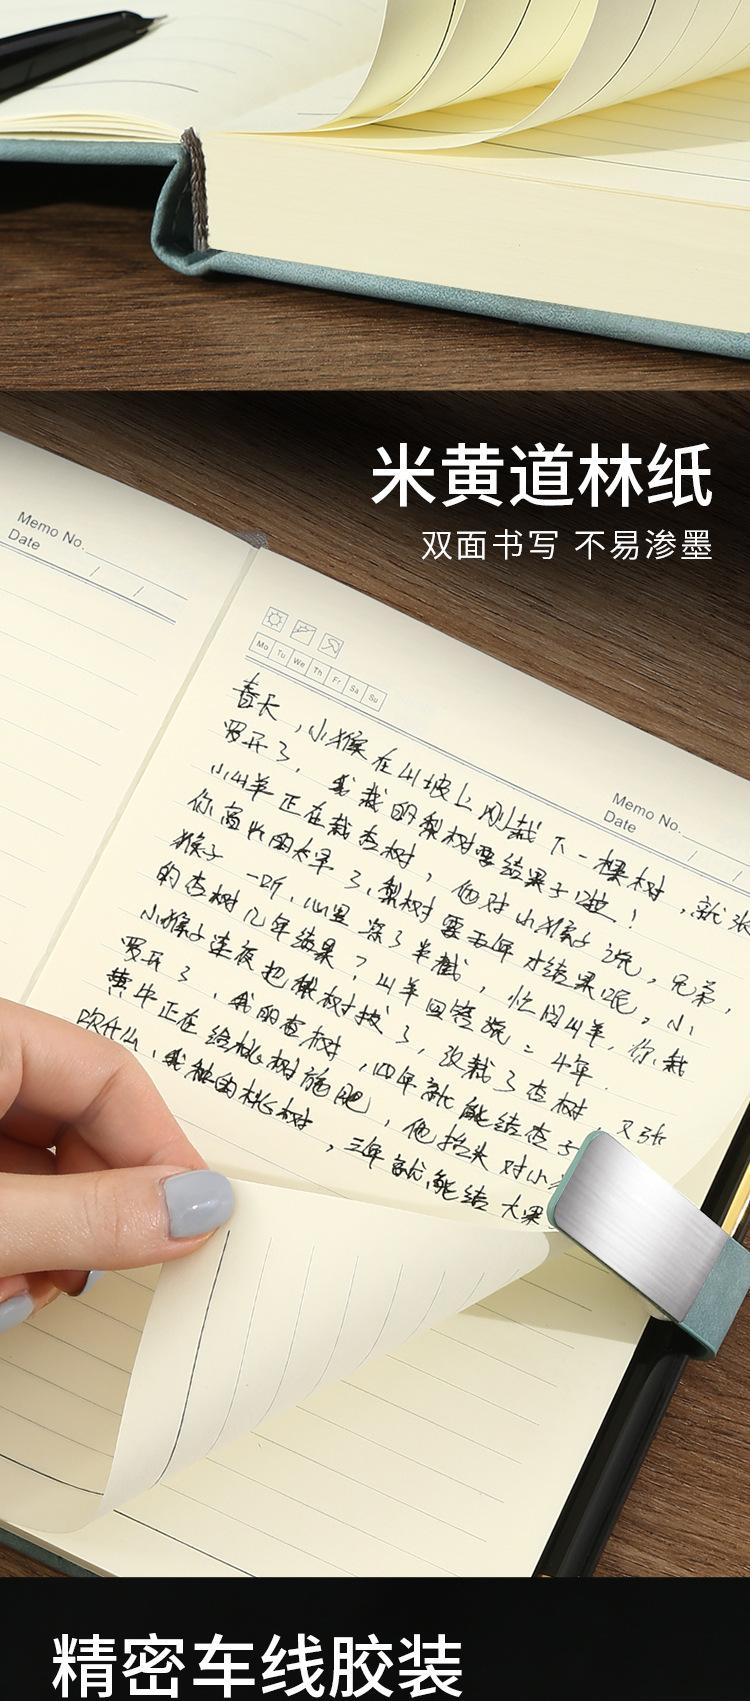 米黄道林纸
双面书写 不易渗墨
Memo No.
Date / /
Mo Tu We Th Fr Sa Su
Memo No.
Date / /
春天,小猴在山坡上刚栽下一棵树,就张
罗开了,我栽的梨树要结果子啦!
小山羊正在栽杏树,他对小猴子说,兄弟,
你高兴的太早了,梨树要五年才结果呢,小
猴子一听,心里凉了半截,忙问山羊,你栽
的杏树几年结果?山羊回答说:4年.
小猴子连夜把梨树拔了,改栽了杏树,又张
罗开了,我的杏树,四年就能结杏子
黄牛正在给桃树施肥,他抬头对小
吹什么,我种的桃树,三年就能结大果
精密车线胶装